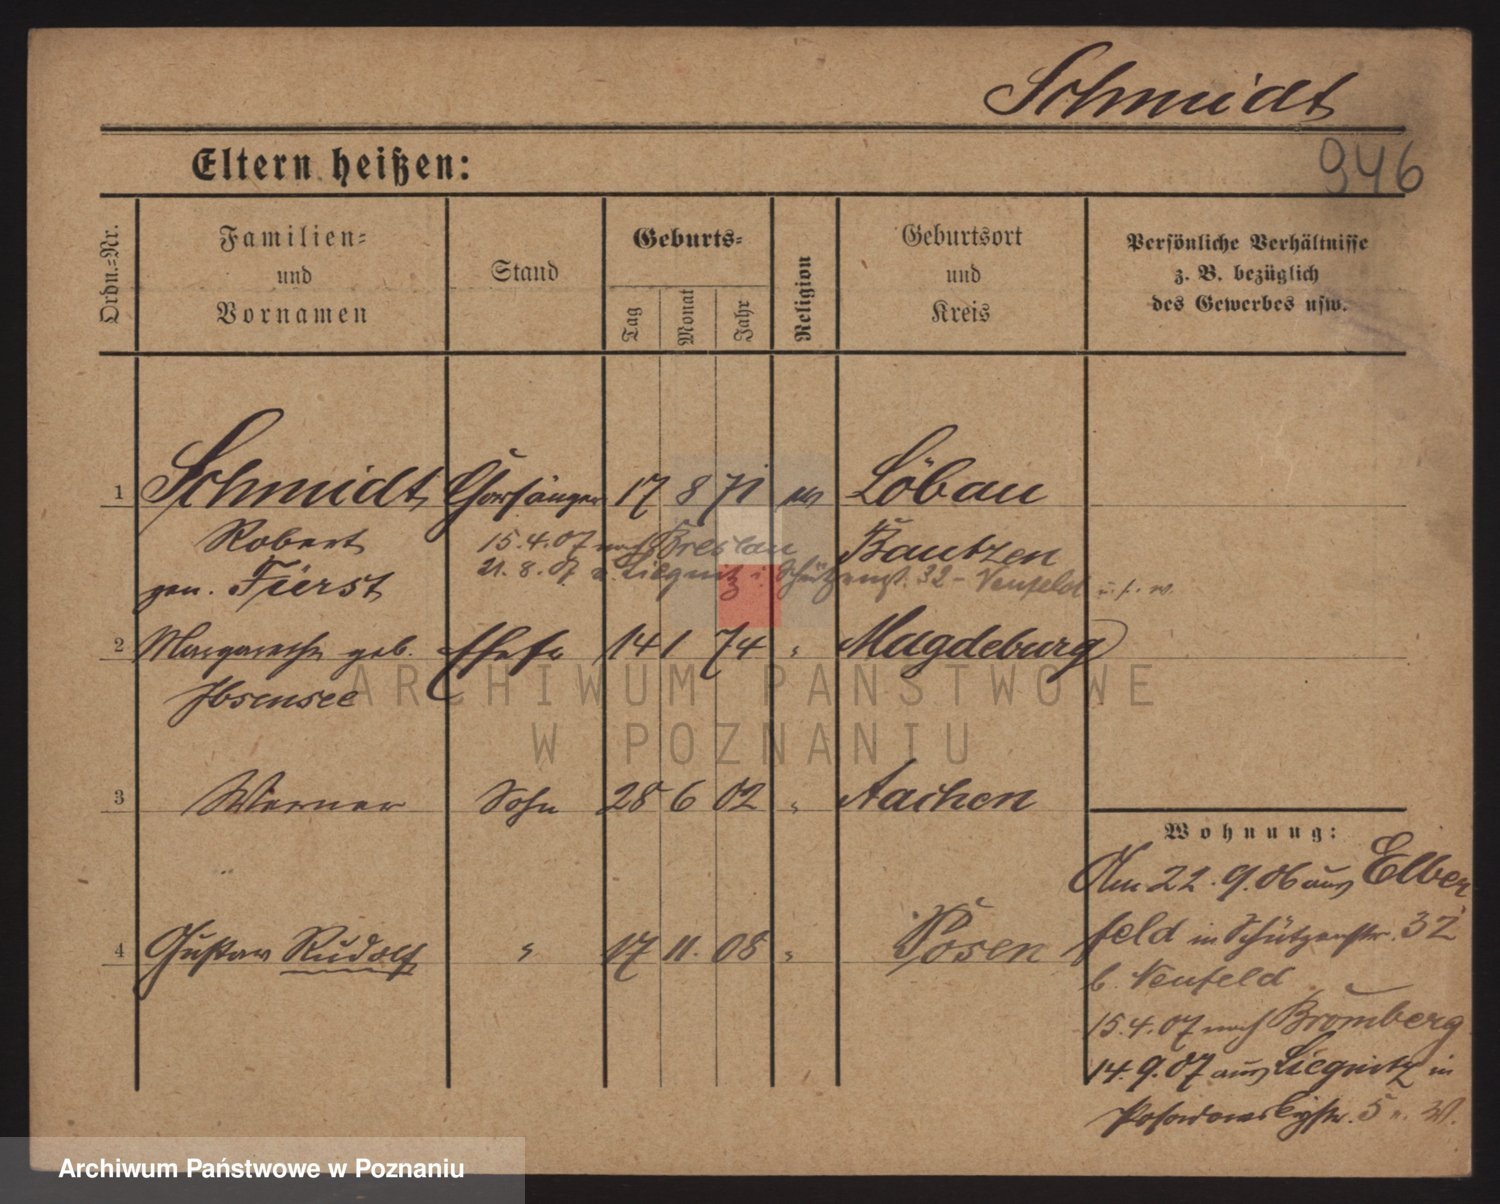 Schmidt
946
Eltern heißen:
Ordn.-Nr.
Familien-
und
Vornamen
Stand
Geburts-
Tag
Monat
Jahr
Religion
Geburtsort
und
Kreis
Persönliche Verhältnisse
z. B. bezüglich
des Gewerbes usw.
1 Schmidt Chorsänger 17 8 71 Löbau
Robert 15.4.07 nach Breslau Bautzen
gen. Fierst 21.8.07 Liegnitz i. Schützenst. 32 - Neufeld u. s. w.
2 Margarethe geb. Ehefr 14 1 74 " Magdeburg
Ibsensee
ARCHIWUM PAŃSTWOWE
W POZNANIU
3 Werner Sohn 28 6 02 " Aachen
4 Gustav Rudolf " 17 11. 08 " Posen
Wohnung:
Am 22.9.06 aus Elber
feld in Schützenstr. 32
b. Neufeld
15.4.07 nach Bromberg
14.9.07 aus Liegnitz in
Posadowskystr. 5 W.
Archiwum Państwowe w Poznaniu